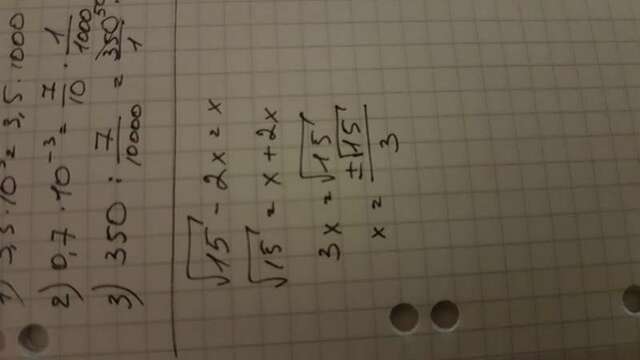 1) 3,5 · 10³ = 3,5 · 1000
2) 0,7 · 10⁻³ = 7/10 · 1/1000
3) 350 : 7/10000 = 350⁵⁰/1
√15 - 2x = x
√15 = x + 2x
3x = √15
x = ±√15/3